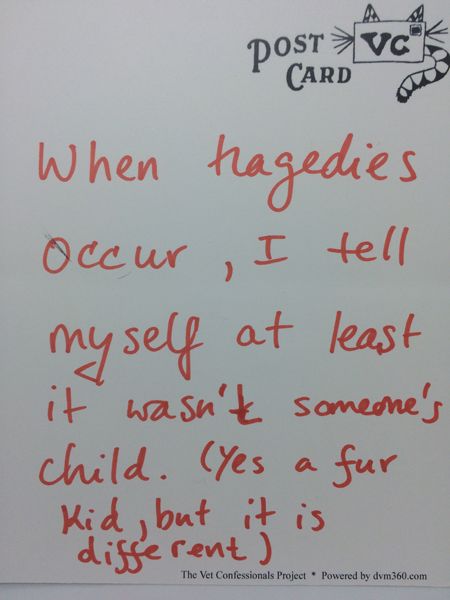 POST VC
CARD
When tragedies
occur, I tell
myself at least
it wasn't someone's
child. (Yes a fur
kid, but it is
different)
The Vet Confessionals Project * Powered by dvm360.com